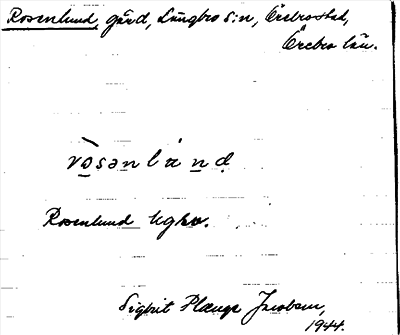 Rosenlund, gård, Längbro s:n, Örebro stad,
Örebro län.
ròsənlánd
Rosenlund Ugkv.
Sigbrit Plænge Jacobson,
1944.